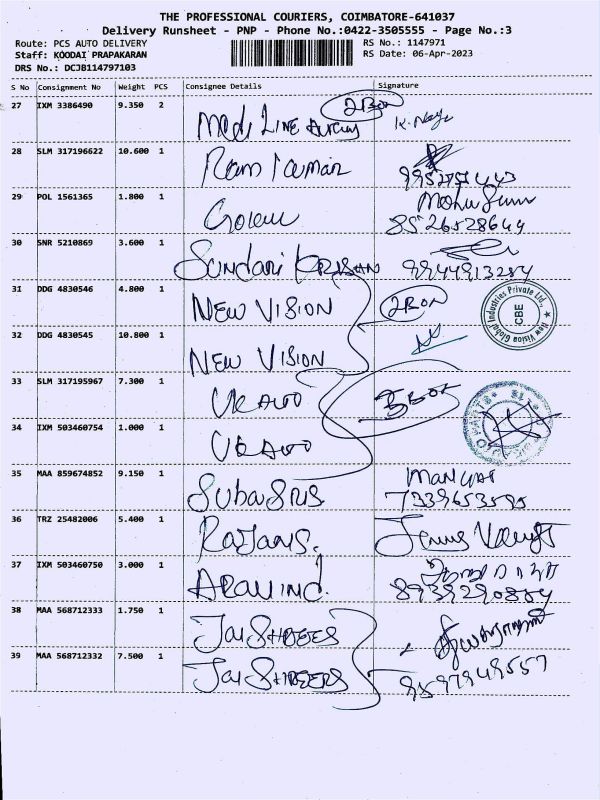 THE PROFESSIONAL COURIERS, COIMBATORE-641037
Delivery Runsheet - PNP - Phone No.:0422-3505555 - Page No.:3
Route: PCS AUTO DELIVERY RS No.: 1147971
Staff: KOODAI PRAPAKARAN RS Date: 06-Apr-2023
DRS No.: DCJB114797103
S No Consignment No Weight PCS Consignee Details Signature
27 IXM 3386490 9.350 2 Medi LINE 2 BOX
28 SLM 317196622 10.600 1 Ram Kumar
29 POL 1561365 1.800 1 8526528649
30 SNR 5210869 3.600 1 SUNDARI 9944913284
31 DDG 4830546 4.800 1 NEW VISION 2 BOX
New Vision Global Industries Private Ltd., CBE
32 DDG 4830545 10.800 1 NEW VISION
33 SLM 317195967 7.300 1 UK AUTO
34 IXM 503460754 1.000 1 UK AUTO
35 MAA 859674852 9.150 1 SUBA SRIS
36 TRZ 25482006 5.400 1 RAJANS.
37 IXM 503460750 3.000 1 ARAVIND. 8939290884
38 MAA 568712333 1.750 1 JAI SHREES
39 MAA 568712332 7.500 1 JAI SHREERS 9597949557